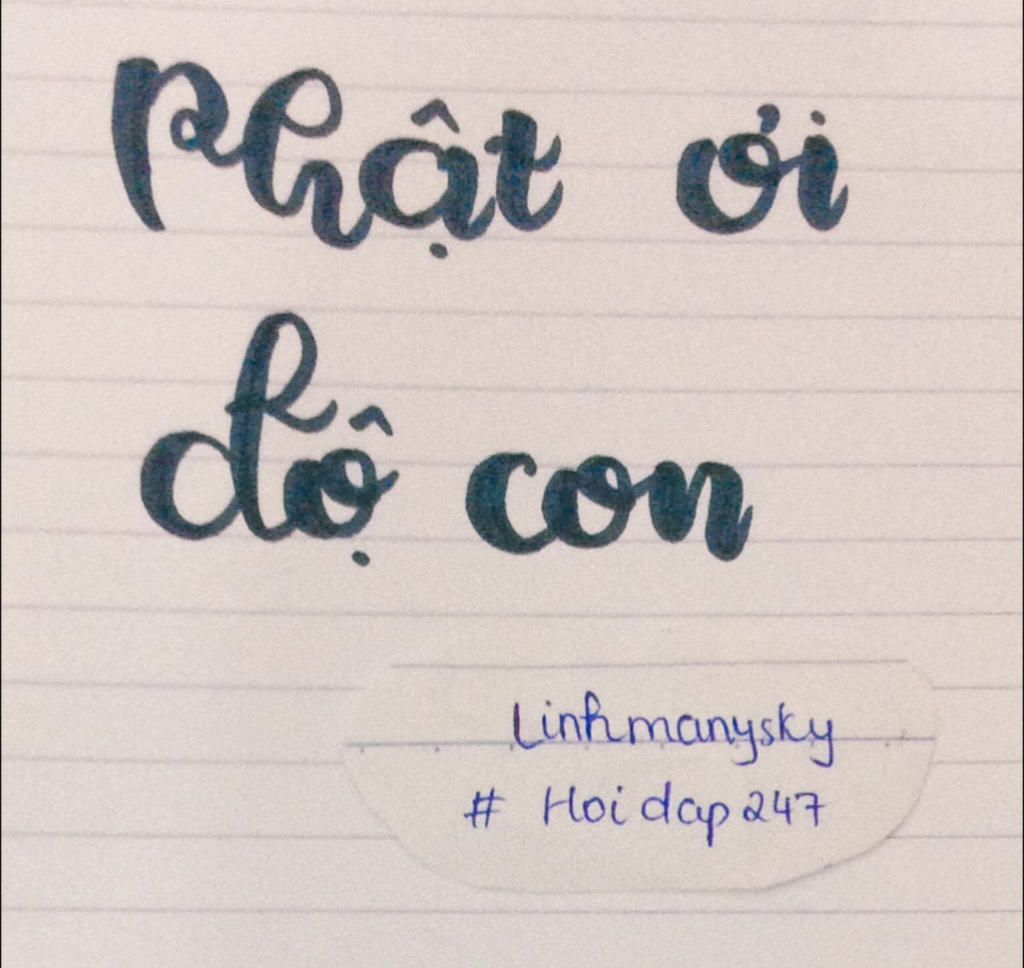 Phật ơi
độ con
Linhmanysky
# Hoidap247